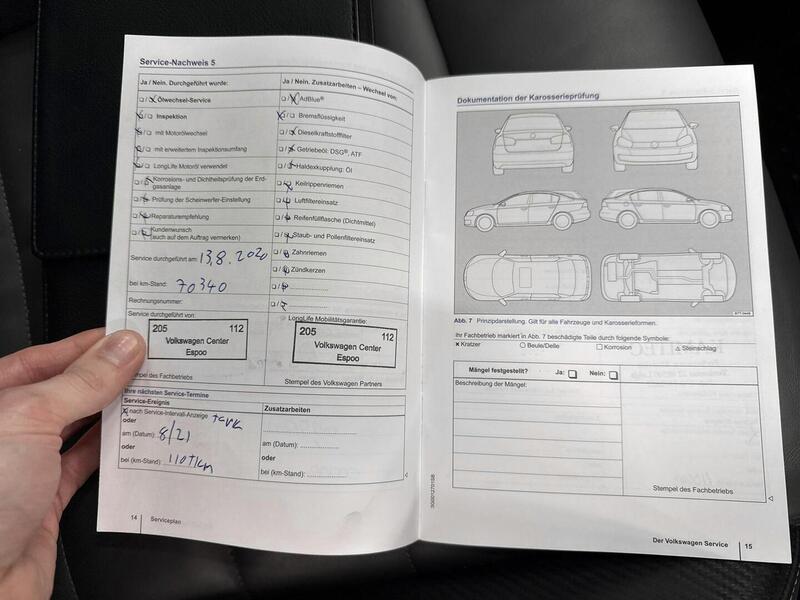 Service-Nachweis 5
Ja / Nein. Durchgeführt wurde:
Ölwechsel-Service
Inspektion
mit Motorölwechsel
mit erweitertem Inspektionsumfang
LongLife Motoröl verwendet
Korrosions- und Dichtheitsprüfung der Erd-
gasanlage
Prüfung der Scheinwerfer-Einstellung
Reparaturempfehlung
Kundenwunsch
(auch auf dem Auftrag vermerken)
Service durchgeführt am: 13.8.2020
bei km-Stand: 70340
Rechnungsnummer:
Service durchgeführt von:
205 112
Volkswagen Center
Espoo
Stempel des Fachbetriebs
Ja / Nein. Zusatzarbeiten – Wechsel von:
AdBlue®
Bremsflüssigkeit
Dieselkraftstofffilter
Getriebeöl: DSG®, ATF
Haldexkupplung: Öl
Keilrippenriemen
Luftfiltereinsatz
Reifenfüllflasche (Dichtmittel)
Staub- und Pollenfiltereinsatz
Zahnriemen
Zündkerzen
LongLife Mobilitätsgarantie:
205 112
Volkswagen Center
Espoo
Stempel des Volkswagen Partners
Ihre nächsten Service-Termine
Service-Ereignis
nach Service-Intervall-Anzeige
oder
am (Datum): 8/21
oder
bei (km-Stand): 110tkm
Zusatzarbeiten
am (Datum):
oder
bei (km-Stand):
14 Serviceplan
Dokumentation der Karosserieprüfung
Abb. 7 Prinzipdarstellung. Gilt für alle Fahrzeuge und Karosserieformen.
Ihr Fachbetrieb markiert in Abb. 7 beschädigte Teile durch folgende Symbole:
× Kratzer ○ Beule/Delle □ Korrosion △ Steinschlag
Mängel festgestellt? Ja: Nein:
Beschreibung der Mängel:
Stempel des Fachbetriebs
Der Volkswagen Service 15